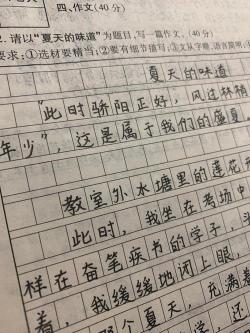 四、作文(40分)
2.请以“夏天的味道”为题目,写一篇作文。(40分)
要求:①选材要精当;②要有细节描写;③文从字顺,语言简明;
夏天的味道
“此时骄阳正好,风过林梢
年少”,这是属于我们的盛夏。
教室外水塘里的莲花
此时,我坐在考场中
样在奋笔疾书的学子,
着,我缓缓地闭上眼,
那个夏天,充满着